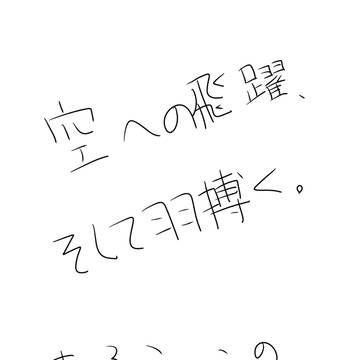 空への飛躍、
そして羽博く。